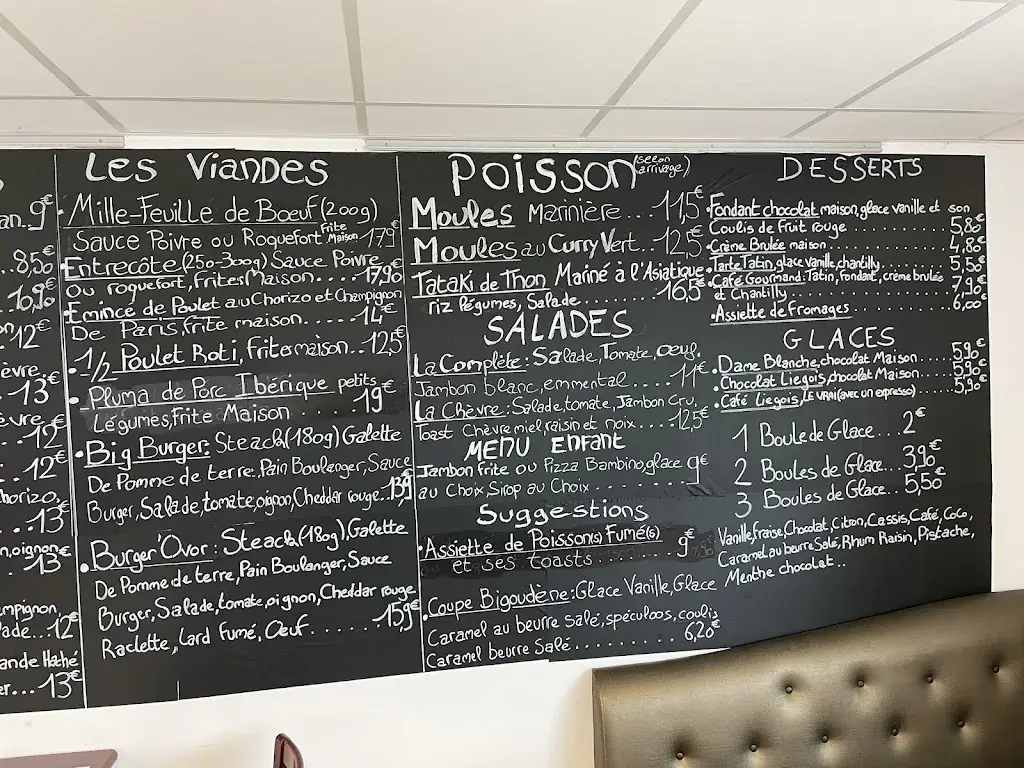 9€
8,50€
10,90€
12€
13€
12€
12€
13€
13€
12€
13€
Les Viandes
Mille-Feuille de Bœuf (200g)
Sauce Poivre ou Roquefort Frite Maison 17,9€
Entrecôte (250-300g) Sauce Poivre
ou roquefort, Frites Maison..... 17,90€
Emince de Poulet au Chorizo et Champignon
De Paris, frite maison..... 14€
1/2 Poulet Roti, Frites maison.. 12,5€
Pluma de Porc Ibérique petits
Légumes, Frite Maison ..... 19€
Big Burger: Steack (180g) Galette
De Pomme de terre, Pain Boulanger, Sauce
Burger, Salade, tomate, oignon, Cheddar rouge.. 13,9€
Burger'Ovor: Steack (180g), Galette
De Pomme de terre, Pain Boulanger, Sauce
Burger, Salade, tomate, oignon, Cheddar rouge
Raclette, Lard Fumé, Œuf....... 15,9€
Poisson (selon arrivage)
Moules Marinière... 11,5€
Moules au Curry Vert... 12,5€
Tataki de Thon Mariné à l'Asiatique
riz légumes, Salade......... 16,5€
SALADES
La Complète: Salade, Tomate, oeuf,
Jambon blanc, emmental.... 11€
La Chèvre: Salade, tomate, Jambon Cru,
Toast Chèvre miel, raisin et noix.... 12,5€
MENU Enfant
Jambon frite ou Pizza Bambino, glace
au Choix, Sirop au Choix ........ 9€
Suggestions
Assiette de Poisson(s) Fumé(s)
et ses toasts ........ 9€
Coupe Bigoudène: Glace Vanille, Glace
Caramel au beurre salé, spéculoos, coulis
Caramel beurre Salé ............ 6,20€
DESSERTS
Fondant chocolat maison, glace vanille et son
Coulis de fruit rouge .......... 5,80€
Crème Brulée maison ........ 4,80€
Tarte Tatin, glace vanille, chantilly ..... 5,50€
Café Gourmand: Tatin, fondant, crème brulée
et Chantilly ............ 7,90€
Assiette de Fromages .......... 6,00€
GLACES
Dame Blanche, chocolat Maison ..... 5,90€
Chocolat Liegois, chocolat Maison ..... 5,90€
Café Liegois, LE VRAI (avec un expresso) ..... 5,90€
1 Boule de Glace... 2€
2 Boules de Glace... 3,90€
3 Boules de Glace... 5,50€
Vanille, Fraise, Chocolat, Citron, Cassis, Café, Coco,
Caramel au beurre Salé, Rhum Raisin, Pistache,
Menthe chocolat..